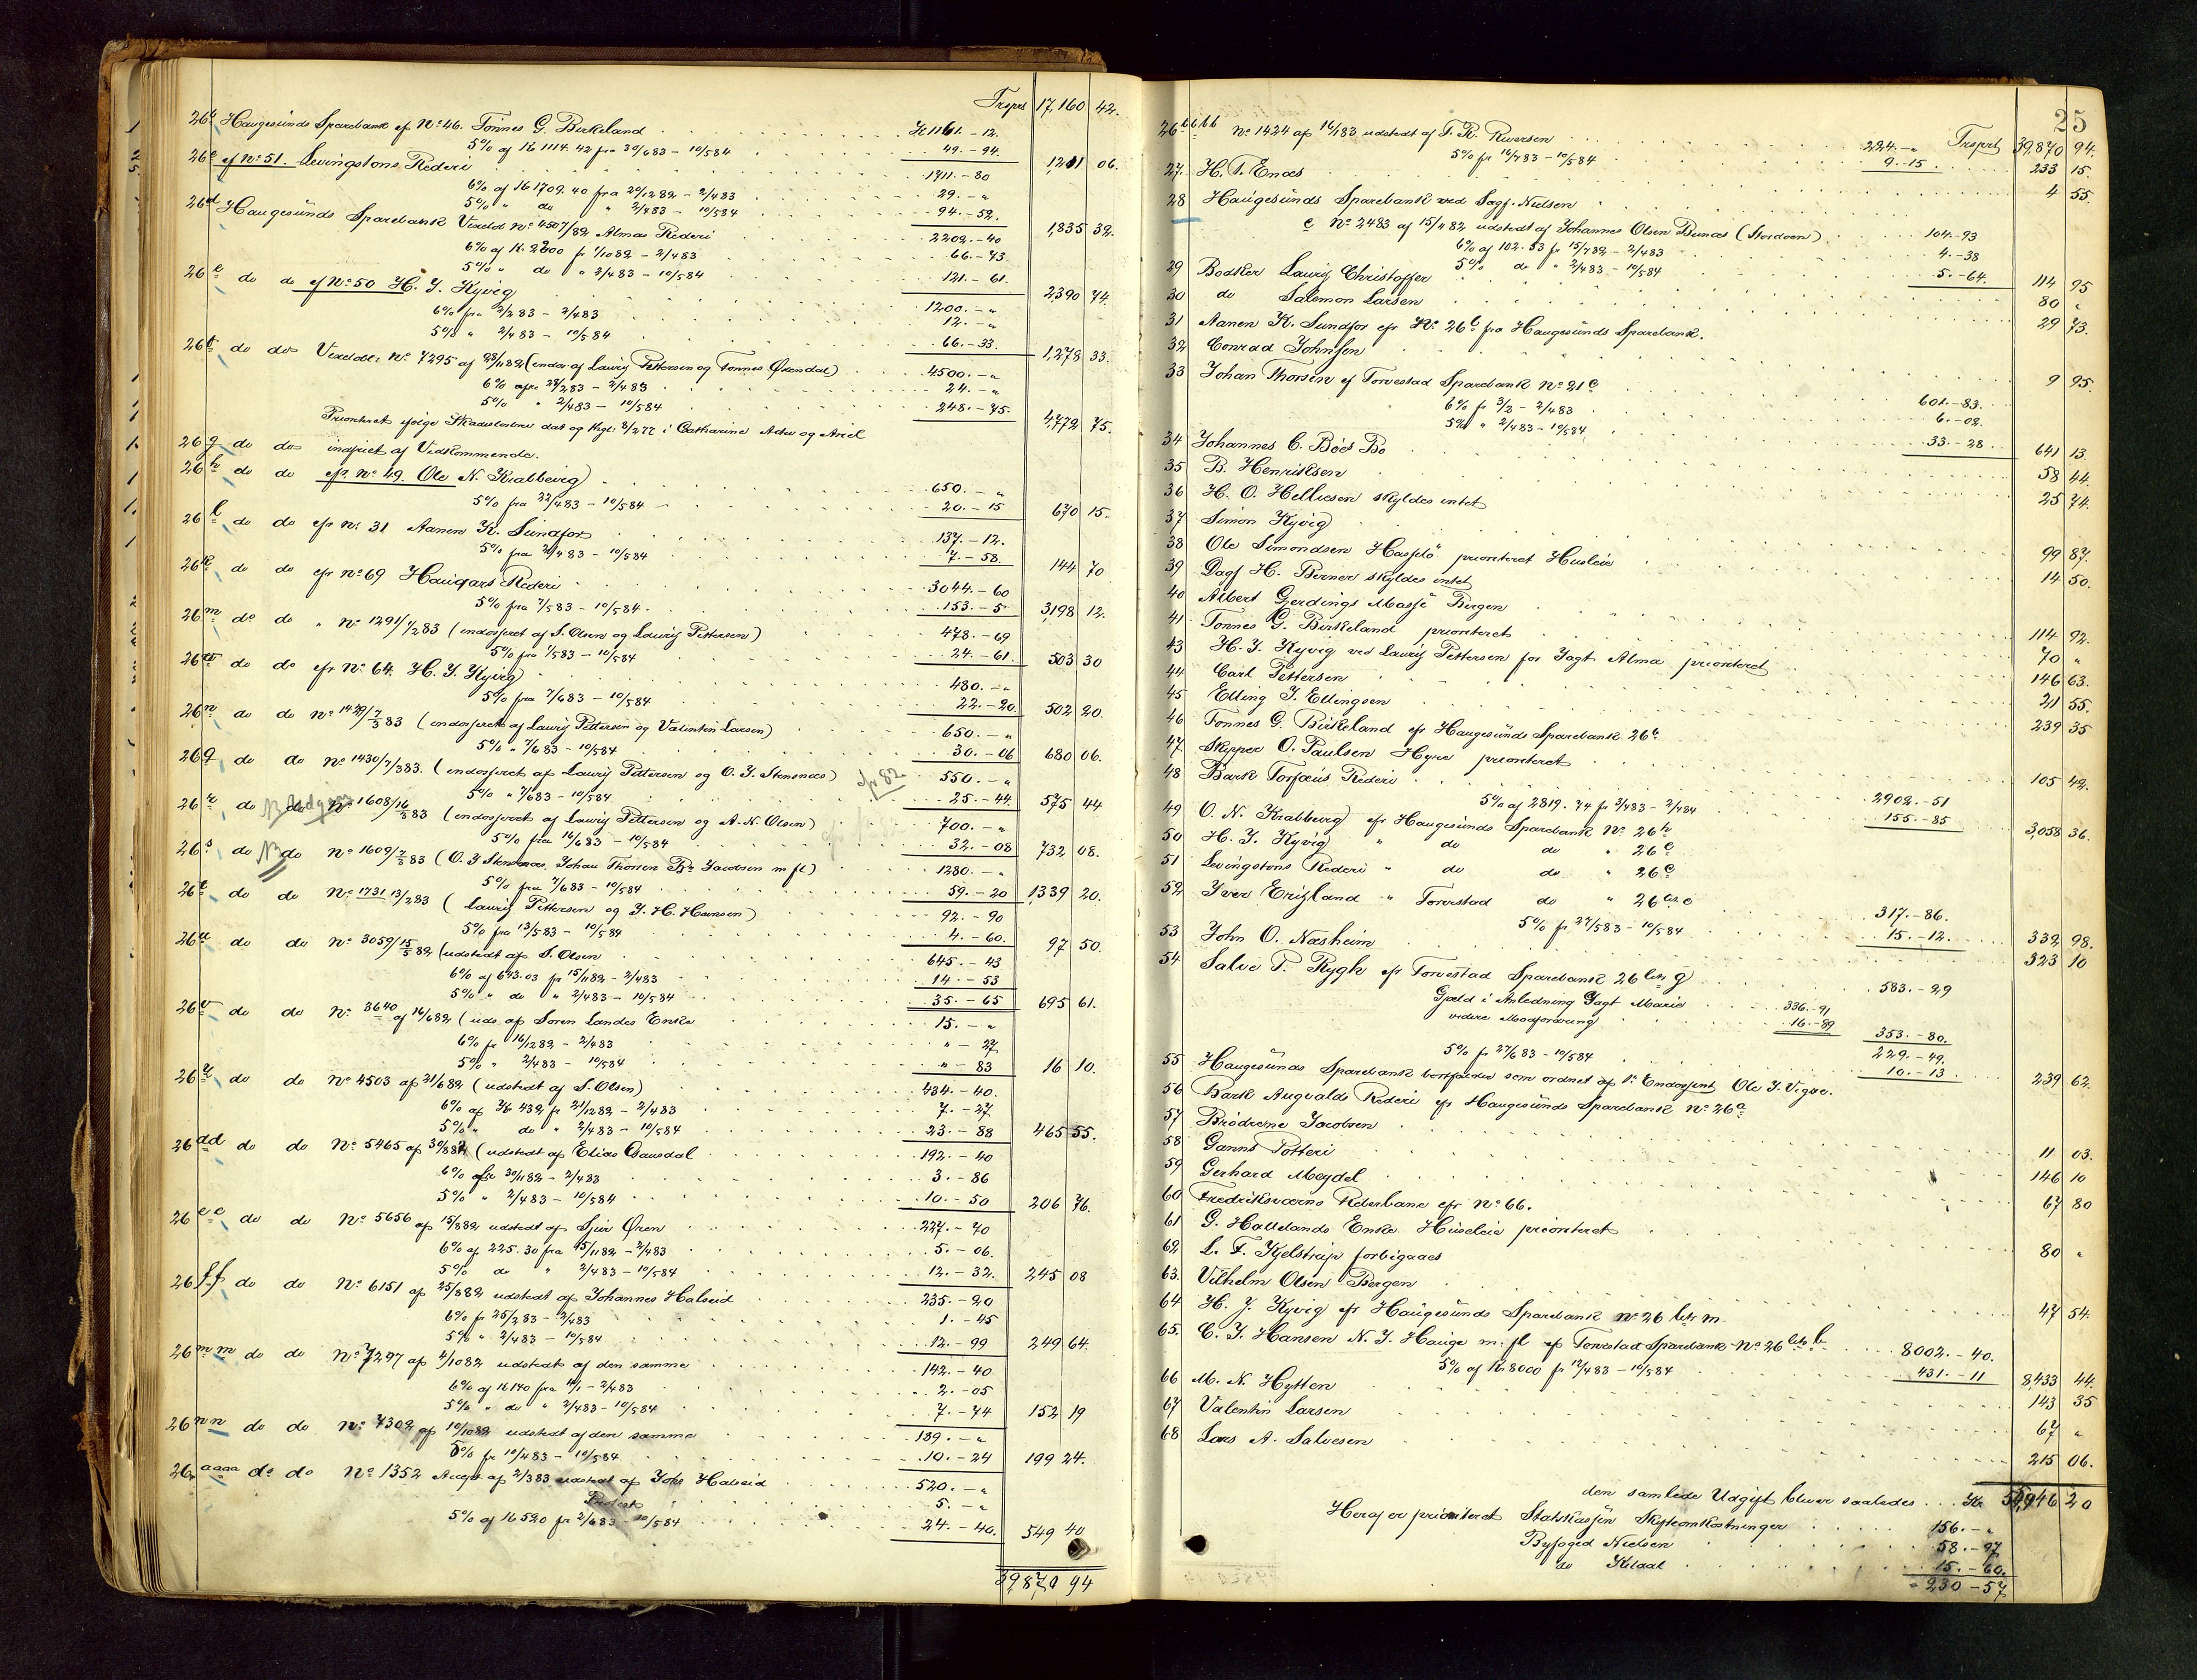 Trsprt 17,160 42.
26b Haugesunds Sparebank ef No 46. Tönnes G. Birkeland Kr 1161.-12.
5% af Kr 1114.42 fra 30/683 - 10/584 49.-94. 1,211 06.
26c ef No 51. Levingstons Rederi 1711.-80
6% af Kr 1709.40 fra 20/1282 - 2/483 29.-"
5% " do " 2/483 - 10/584 94.-52. 1,835 32.
26d Haugesunds Sparebank Vexelobl No 4507/82 Almas Rederi 2202.-40
6% af Kr 2200 fr 1/1082 - 2/483 66.-73
5% " do " 2/483 - 10/584 121.-61. 2,390 74.
26e do do ef No 50 H. J. Kyvig 1200.-"
6% fra 2/283 - 2/483 12.-"
5% " 2/483 - 10/584 66.-33. 1,278 33.
26f do do Vexelobl. No 7295 af 28/1182 (endos. af Lauritz Pettersen og Tonnes Øxendal) 4500.-"
6% af fr 28/283 - 2/483 24.-"
5% " 2/483 - 10/584 248.-75. 4,772 75.
Prioriteret ifølge Skadesløsbrev dat og tlgl. 8/277 i Catharine Adie og Ariel
26g do do indfriet af Vedkommende.
26h do do efr. No 49. Ole N. Krabbevig 650.-"
5% fra 22/483 - 10/584 20.-15 670 15.
26l do do efr No 31 Aanen K. Sundfor 137.-12.
5% fra 2/483 - 10/584 7.-58. 144 70
26k do do efr No 69 Haugars Rederi 3044.-60
5% fra 7/583 - 10/584 153.-5" 3,198 12.
26m do do " No 1291/1/283 (endosseret af S. Olsen og Lauritz Pettersen) 478.-69
5% fra 1/583 - 10/584 24.-61. 503 30
26m do do efr No 64. H. J. Kyvig 480.-"
5% fra 7/683 - 10/584 22.-20. 502 20.
26n do do No 1429/7/383 (endosseret af Lauritz Pettersen og Valentin Larsen) 650.-"
5% " 7/683 - 10/584 30.-06 680 06.
26q do do No 1430/7/383. (endosseret af Lauritz Pettersen og O. J. Stensnæs) efr 82 550.-"
5% " 7/683 - 10/584 25.-44. 575 44
26r do do No 1608/16/383 (endosseret af Lauritz Pettersen og A. N. Olsen) 700.-"
5% fra 16/683 - 10/584 32.-08 732 08.
26s do do No 1609/7/383 (O. J Stensnæs, Johan Thorsen Br. Jacobsen m fl) 1280.-"
5% fra 7/683 - 10/584 59.-20 1,339 20.
26t do do No 1731 13/283 (Lauritz Pettersen og J. H. Hansen) 92.-90
5% fra 13/583 - 10/584 4.-60. 97 50.
26u do do No 3059/15/582 (udstedt af S. Olsen 645.-43
6% af 643.03 fr 15/1182 - 2/483 14.-53
5% " do " 2/483 - 10/584 35.-65 695 61.
26v do do No 3640 af 16/682 (uds af Soren Landes Enke 15.-"
6% fr 16/1282 - 2/483 "-27
5% " 2/483 - 10/584 "-83 16 10.
26y do do No 4503 af 21/682 (udstedt af S. Olsen) 434.-40.
6% af Kr 432 fr 21/1282 - 2/483 7.-27.
5% " do " 2/483 - 10/584 23.-88 465 55.
26dd do do No 5465 af 30/882 (udstedt af Elias Gausdal 192.-40
6% fr 30/1182 - 2/483 3.-86
5% " 2/483 - 10/584 10.-50 206 76.
26ee do do No 5656 af 15/882 udstedt af Sjur Øren 227.-70
6% af 225.30 fra 15/1182 - 2/483 5.-06.
5% do " 2/483 - 10/584 12.-32. 245 08
26ff do do No 6151 af 25/882 udstedt af Johannes Halseid 235.-20
6% fr 25/283 - 2/483 1.-45
5% " 2/483 - 10/584 12.-99 249 64.
26mm do do No 7297 af 4/1082 udstedt af den samme 142.-40
6% af Kr 140 fra 4/1 - 2/483 2.-05
5% " do " 2/483 - 10/584 7.-74 152 19
26nn do do No 7302 af 10/1082 udstedt af den samme 189.-"
5% fr 10/483 - 10/584 10.-24 199 24.
26aaaa do do No 1352 Accept af 2/383 udstedt af Johs Halseid 520.-"
Protest 5.-"
5% af Kr 520 fr 2/683 - 10/584 24.-40. 549 40
39,870 94
25
Trsprt 39,870 94.
26bbbb No 1424 af 16/183 udstedt af T. R. Riversen 224.-"
5% fr 16/783 - 10/584 9.-15. 233 15.
27. H. T. Enæs 4 55.
28 Haugesunds Sparebank ved Sagf. Nielsen
c No 2483 af 15/482 udstedt af Johannes Olsen Bunæs (Stordoen) 104.-93
6% af 102.53 fr 15/782 - 2/483 4.-38
5% do " 2/483 - 10/584 5.-64. 114 95
29 Bodker Lauritz Christoffer 80 "
30 do Salemon Larsen 29 73.
31 Aanen K. Sundfor efr No 26l fra Haugesunds Sparebank.
32 Conrad Johnsen 9 95.
33 Johan Thorsen ef Torvestad Sparebank No 21c 601.-83.
6% fr 3/2 - 2/483 6.-02.
5% " 2/483 - 10/584 33.-28 641 13.
34 Johannes C. Böes Bo 58 44.
35 B. Henriksen 25 74.
36 H. O. Helliesen skyldes intet
37 Simon Kyvig 99 87.
38 Ole Simondsen Hasselö prioriteret Husleie 14 50.
39 Dagf H. Berner skyldes intet
40 Albert Gerdings Masse Bergen 114 92.
41 Tonnes G. Birkeland prioriteret 70 "
43 H. J. Kyvig ved Lauritz Pettersen for Jagt Alma prioriteret 146 63.
44 Carl Pettersen 21 55.
45 Elling J. Ellingsen 239 35
46 Tonnes G. Birkeland efr Haugesunds Sparebank 26b.
47 Skipper O. Paulsen Hyre prioriteret 105 42.
48 Bark Torfæus Rederi 2902.-51
5% af 2819.74 fr 2/483 - 2/484 155.-85 3,058 36.
49 O. N. Krabbevig efr Haugesunds Sparebank No 26h
50 H. J. Kyvig " do do " 26e
51 Levingstons Rederi " do do " 26c
52 Iver Erigland " Torvestad do " 26 litr c 317.-86.
5% fr 27/583 - 10/584 15.-12. 332 98.
53 John O. Næsheim 323 10
54 Salve P. Rygh efr Torvestad Sparebank 26 litr g 583.-29
Gjæld i Anledning Jagt Marie 336.-91
videre Modfordring 16.-89 353.-80.
229.-49.
5% fr 27/683 - 10/584 10.-13 239 62.
55 Haugesunds Sparebank bortfalder som ordnet af 1ste Endossent Ole J. Vigre.
56 Bark Augvalds Rederi efr Haugesunds Sparebank No 26a
57 Brödrene Jacobsen 11 03.
58 Ganns Potteri 146 10
59 Gerhard Meydel 67 80
60 Fredriksværns Reberbane efr No 66.
61 G. Hallelands Enke Huseleie prioriteret 80 "
62 L. F. Kjelstrup forbigaaes
63. Vilhelm Olsen Bergen 47 54.
64 H. J. Kyvig efr Haugesunds Sparebank No 26 litr m
65. C. J. Hansen N. J. Hauge m. fl ef Torvestad Sparebank No 26 litr b 8002.-40.
5% af Kr. 8000 fr 12/483 - 10/584 431.-11 8,433 44.
66 M. N. Hytten 143 35
67 Valentin Larsen 67 "
68 Lars A. Salvesen 215 06.
den samlede Udgift bliver saaledes Kr 54,946 20
Heraf er prioriteret Statskassen Skifteomkostninger 156.-"
Byfoged Nielsen 58.-97
do Kildal 15.-60.
230-57